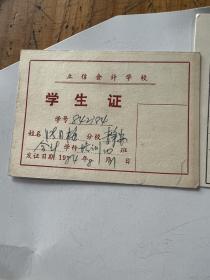 立信会计学校
学生证
学号842184
姓名 分校静安
会计学科培训四班
发证日期1984年8月1日